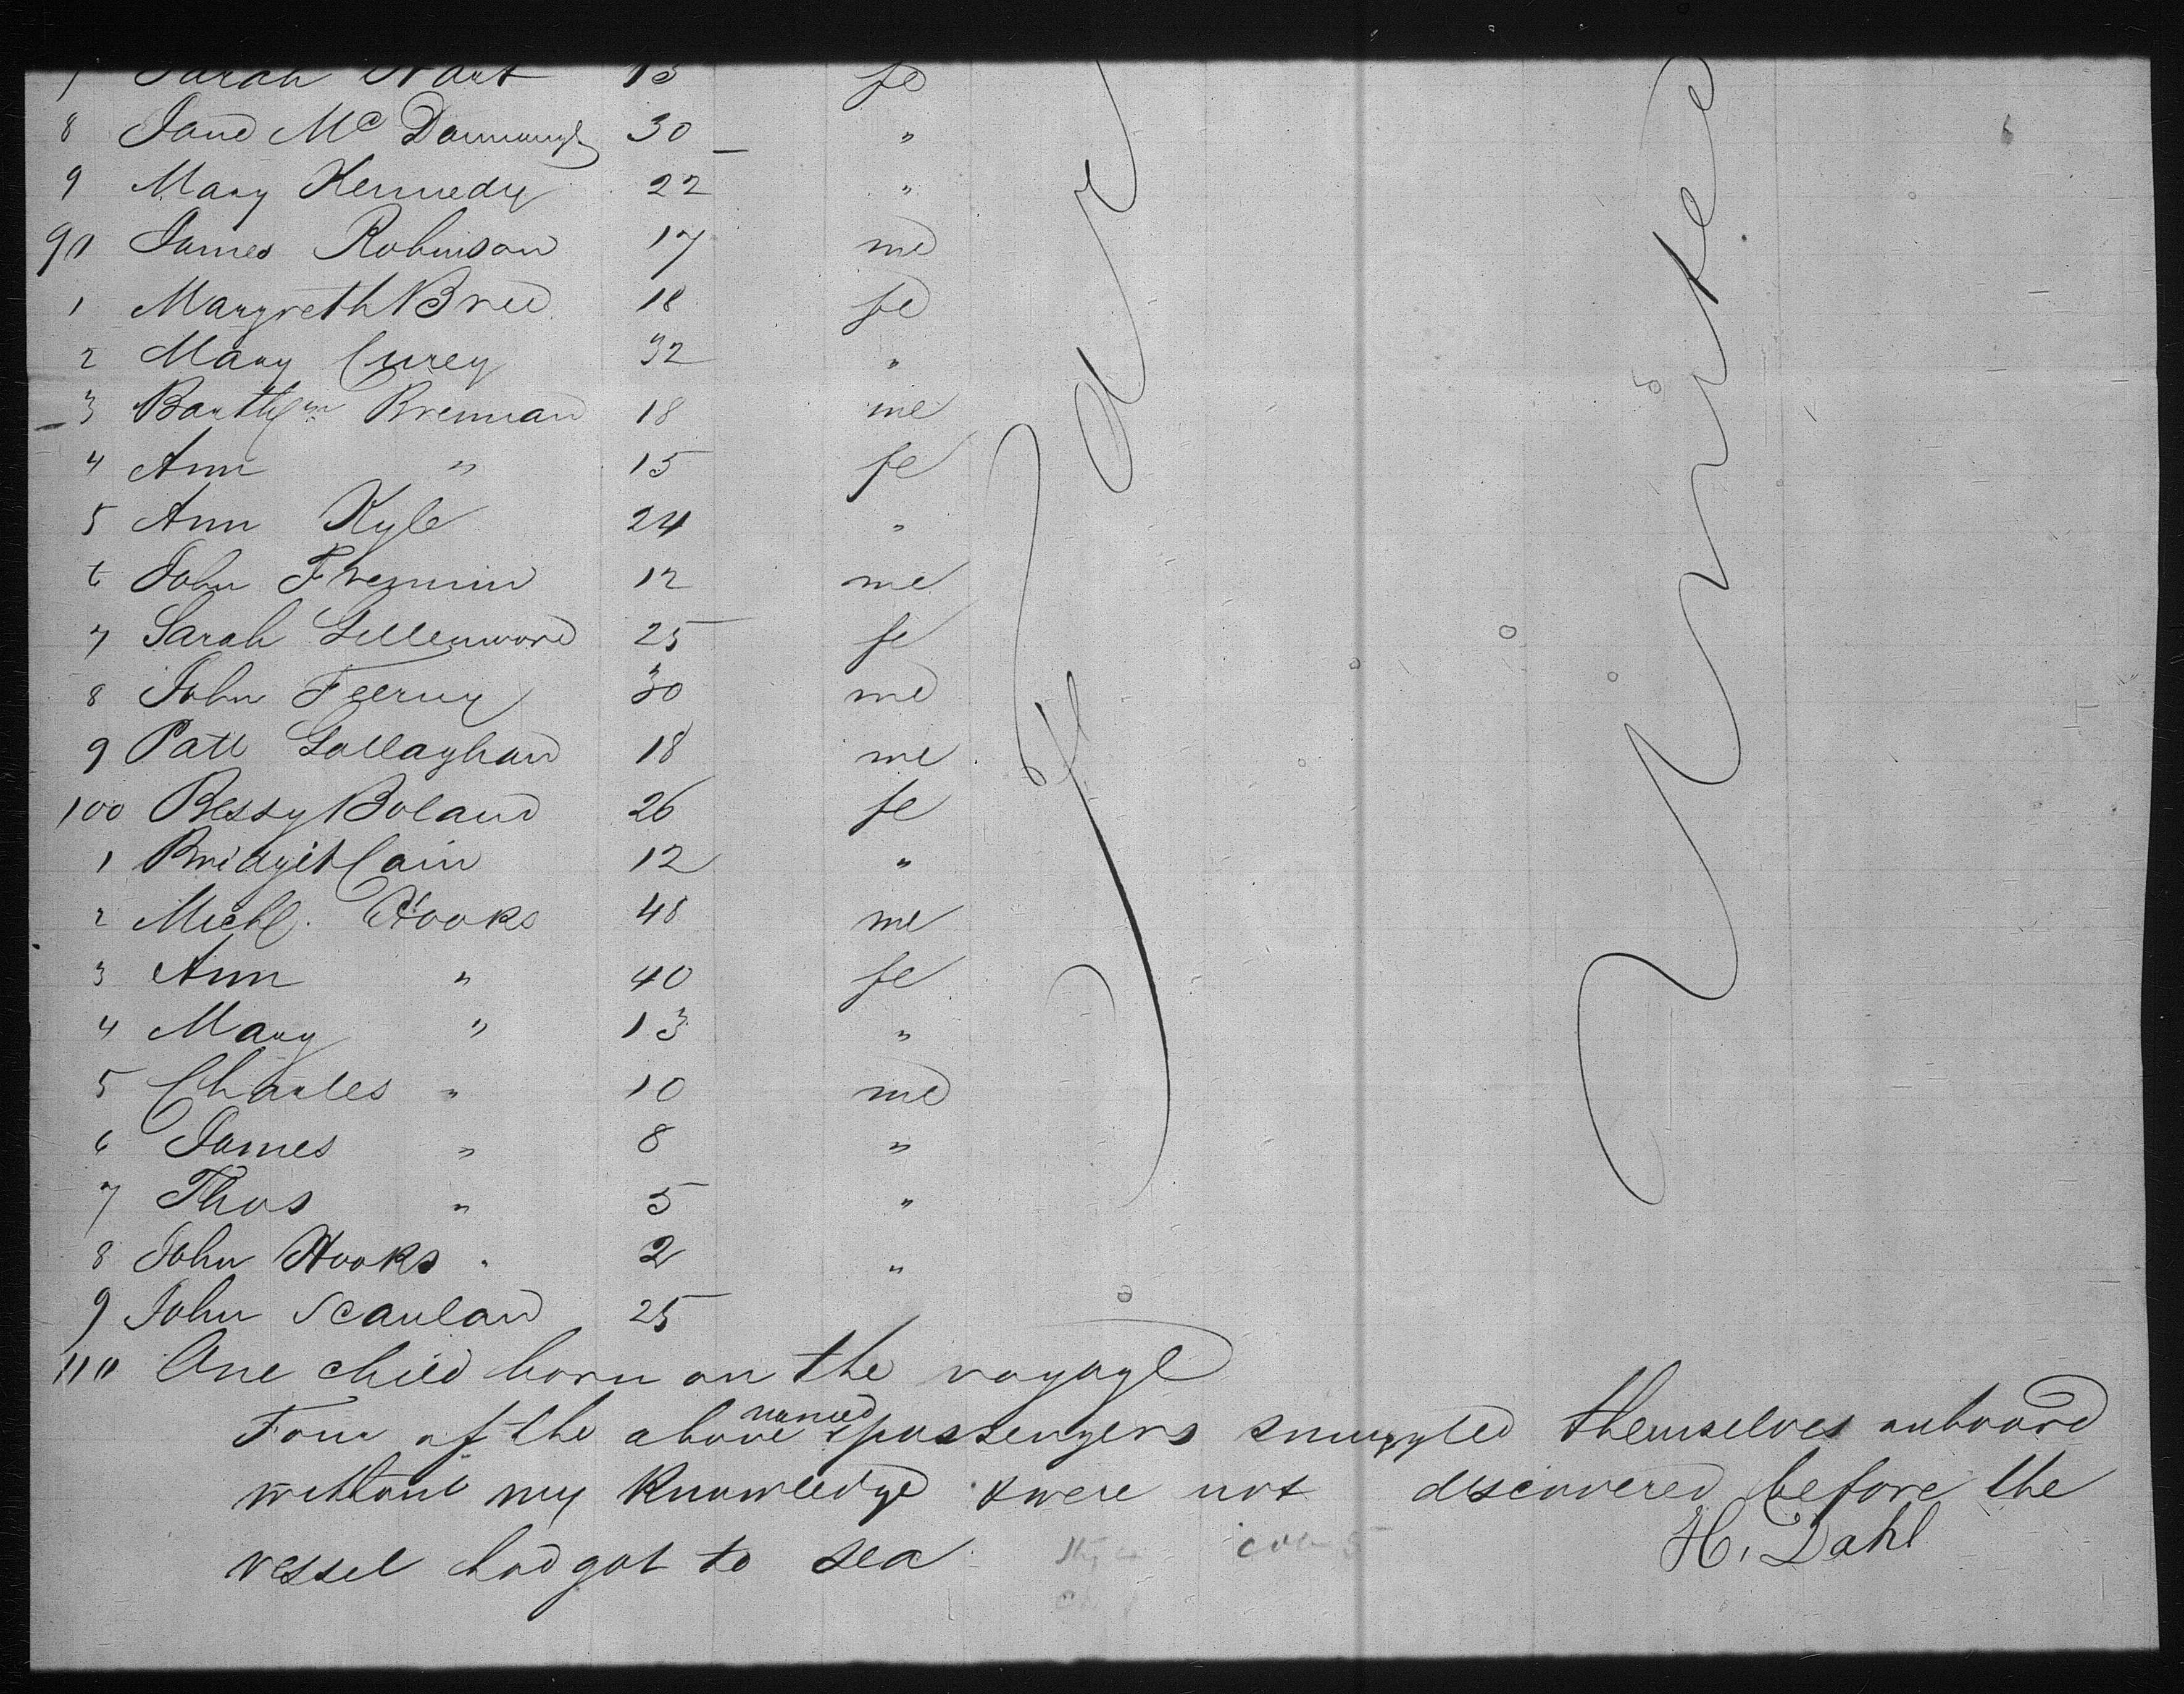 7 Sarah Hart 13 fe
8 Jane Mc Dannaugh 30 "
9 Mary Kennedy 22 "
90 James Robinson 17 me
1 Margreth Bree 18 fe
2 Mary Curey 32 "
3 Barthm Brennan 18 me
4 Ann " 15 fe
5 Ann Kyle 24 "
6 John 12 me
7 Sarah 25 fe
8 John Feeruy 30 me
9 Patt Gallaghan 18 me
100 Bessy Boland 26 fe
1 Bridgit Cain 12 "
2 Michl. Hooks 48 me
3 Ann " 40 fe
4 Mary " 13 "
5 Charles " 10 me
6 James " 8 "
7 Thos " 5 "
8 John Hooks " 2 "
9 John Scanlan 25
110 One child born on the voyage
Four of the above named passengers smuggled themselves onboard
without my knowledge & were not discovered before the
vessel had got to sea
H. Dahl
United